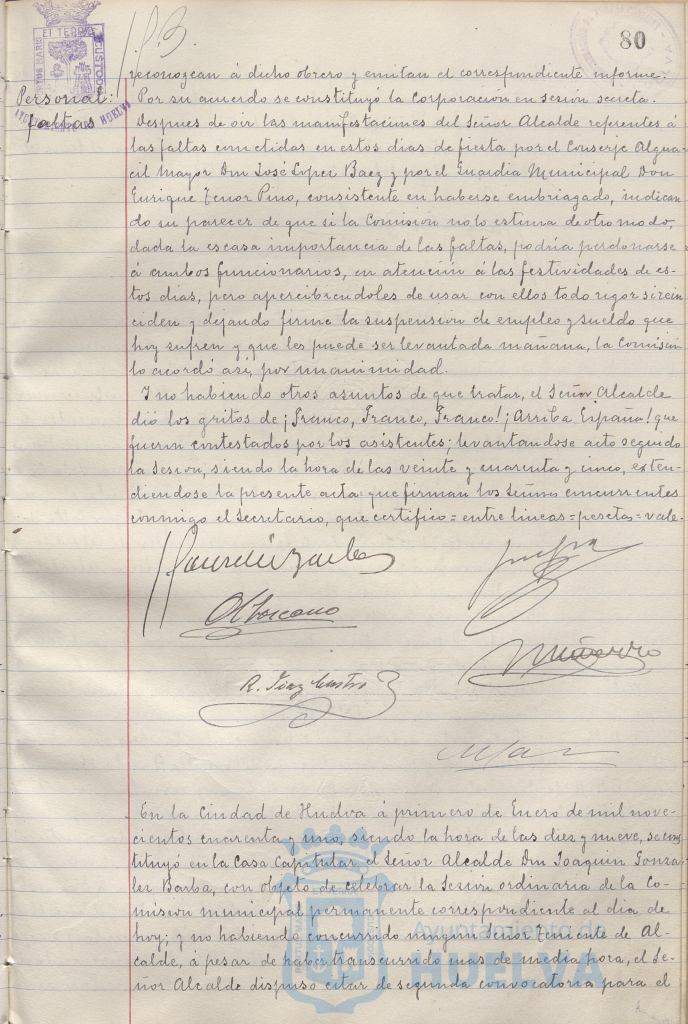 80
reconozcan á dicho obrero y emitan el correspondiente informe.
Personal: Por su acuerdo se constituyó la Corporación en sesión secreta.
faltas Despues de oir las manifestaciones del Señor Alcalde referentes á
las faltas cometidas en estos dias de fiesta por el Conserje Algua-
cil Mayor Don José Lopez Baez y por el Guardia Municipal Don
Enrique Tenor Pino, consistente en haberse embriagado, indican
do su parecer de que si la Comisión no lo estima de otro modo,
dada la escasa importancia de las faltas, podría perdonarse
á ambos funcionarios, en atención á las festividades de es-
tos dias, pero apercibiendoles de usar con ellos todo rigor si rein
ciden y dejando firme la suspensión de empleo y sueldo que
hoy sufren y que les puede ser levantada mañana, la Comisión
lo acordó asi, por unanimidad.
Y no habiendo otros asuntos de que tratar, el Señor Alcalde
dió los gritos de ¡Franco, Franco, Franco! ¡Arriba España! que
fueron contestados por los asistentes; levantandose acto seguido
la Sesión, siendo la hora de las veinte y cuarenta y cinco, exten-
diendose la presente acta que firman los Señores concurrentes
conmigo el Secretario, que certifico = entre lineas = pesetas = vale.
R. Diaz Castro
En la Ciudad de Huelva á primero de Enero de mil nove-
cientos cuarenta y uno, siendo la hora de las diez y nueve, se cons
tituyó en la Casa Capitular el Señor Alcalde Don Joaquin Gonza-
lez Barba, con objeto de celebrar la Sesión ordinaria de la Co-
misión municipal permanente correspondiente al dia de
hoy; y no habiendo concurrido ningun Señor Teniente de Al-
calde, á pesar de haber transcurrido mas de media hora, el Se-
ñor Alcalde dispuso citar de segunda convocatoria para el
Ayuntamiento de
HUELVA